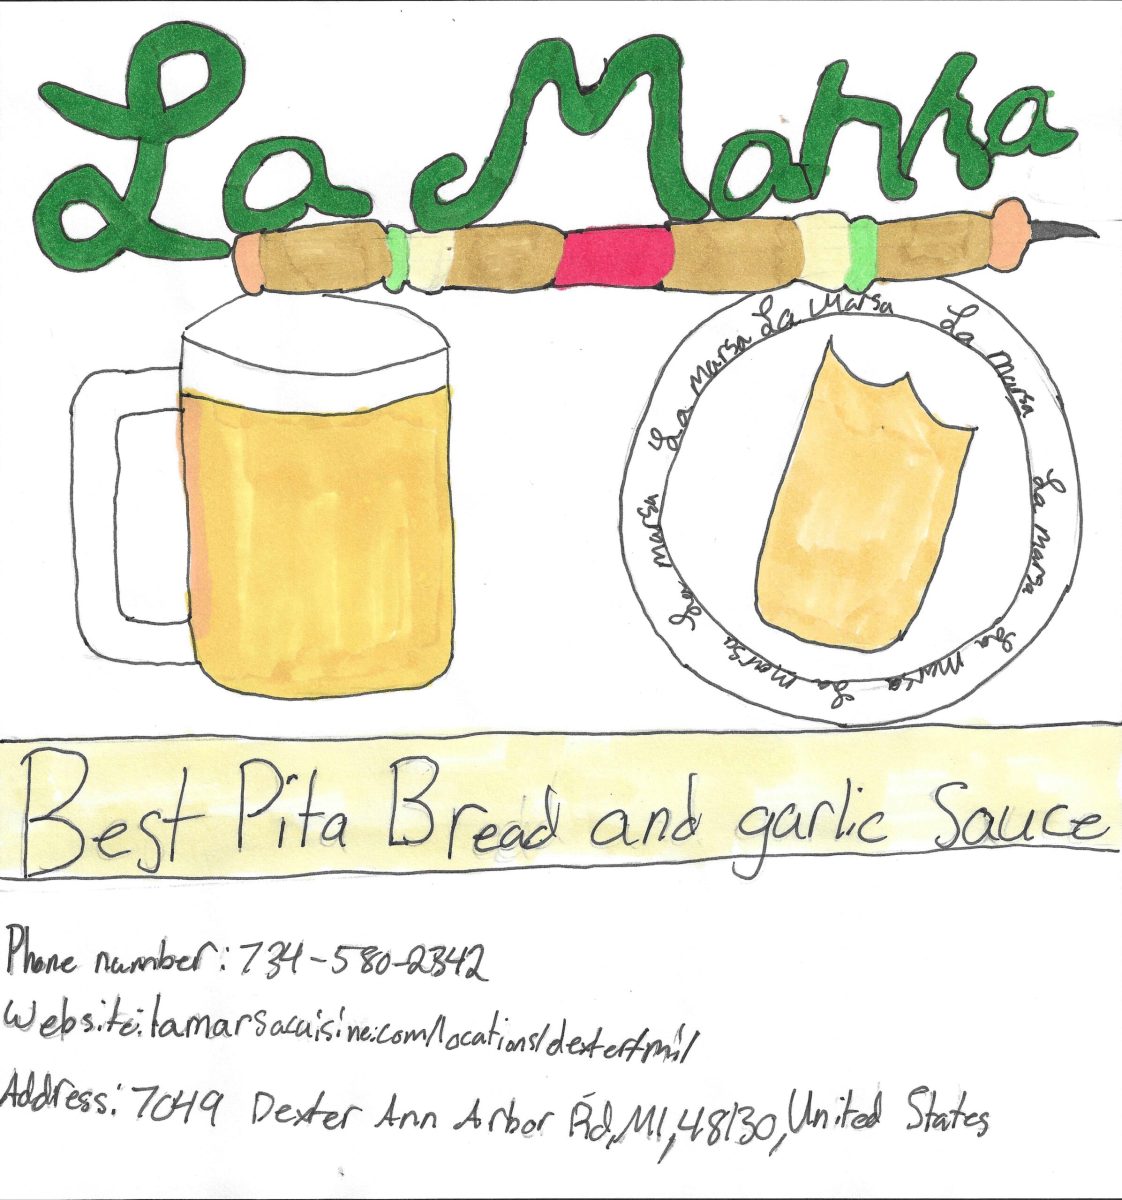 La Marsa
La Marsa La Marsa La Marsa La Marsa La Marsa La Marsa La Marsa La Marsa
Best Pita Bread and garlic Sauce
Phone number: 734-580-2342
Website: lamarsacuisine.com/locations/dexter/mi/
Address: 7049 Dexter Ann Arbor Rd, MI, 48130, United States